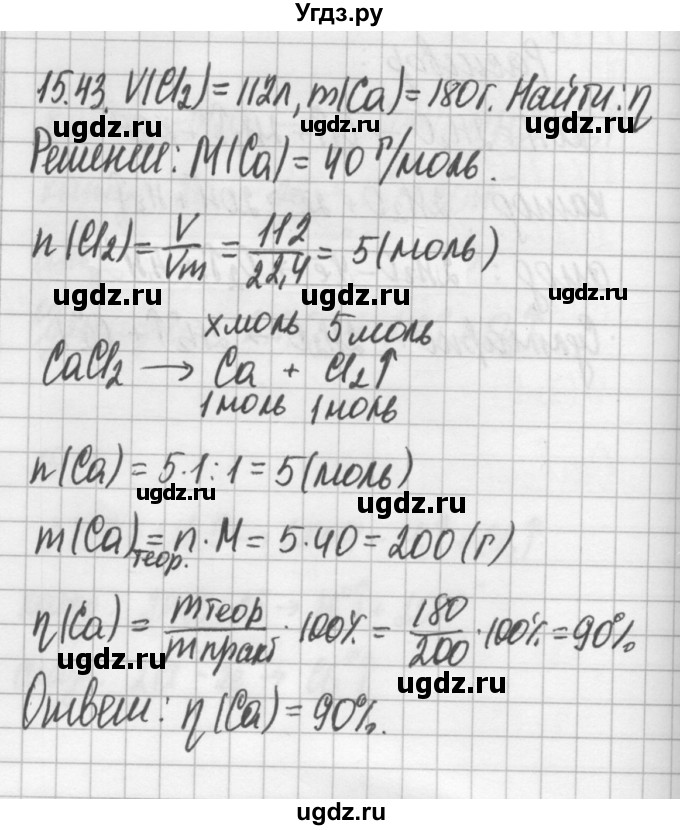 Угдз.ру
15.43. V(Cl₂) = 112л, m(Ca) = 180г. Найти: η
ugdz.ru ugdz.ru ugdz.ru
Решение: M(Ca) = 40 г/моль.
n(Cl₂) = V/Vm = 112/22,4 = 5(моль)
ugdz.ru ugdz.ru ugdz.ru
xмоль 5моль
CaCl₂ → Ca + Cl₂↑
ugdz.ru
1моль 1моль
n(Ca) = 5·1:1 = 5(моль)
ugdz.ru ugdz.ru
m(Ca)теор. = n·M = 5·40 = 200(г)
η(Ca) = mтеор/mпракт · 100% = 180/200 · 100% = 90%
ugdz.ru ugdz.ru
Ответ: η(Ca) = 90%.
ugdz.ru
ugdz.ru